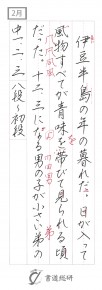 2月
伊豆半島の年の暮れだ。日が入って
風物すべてが青味を帯びて見られる頃
だった。十二、三になる男の子が小さい弟の
書道総研